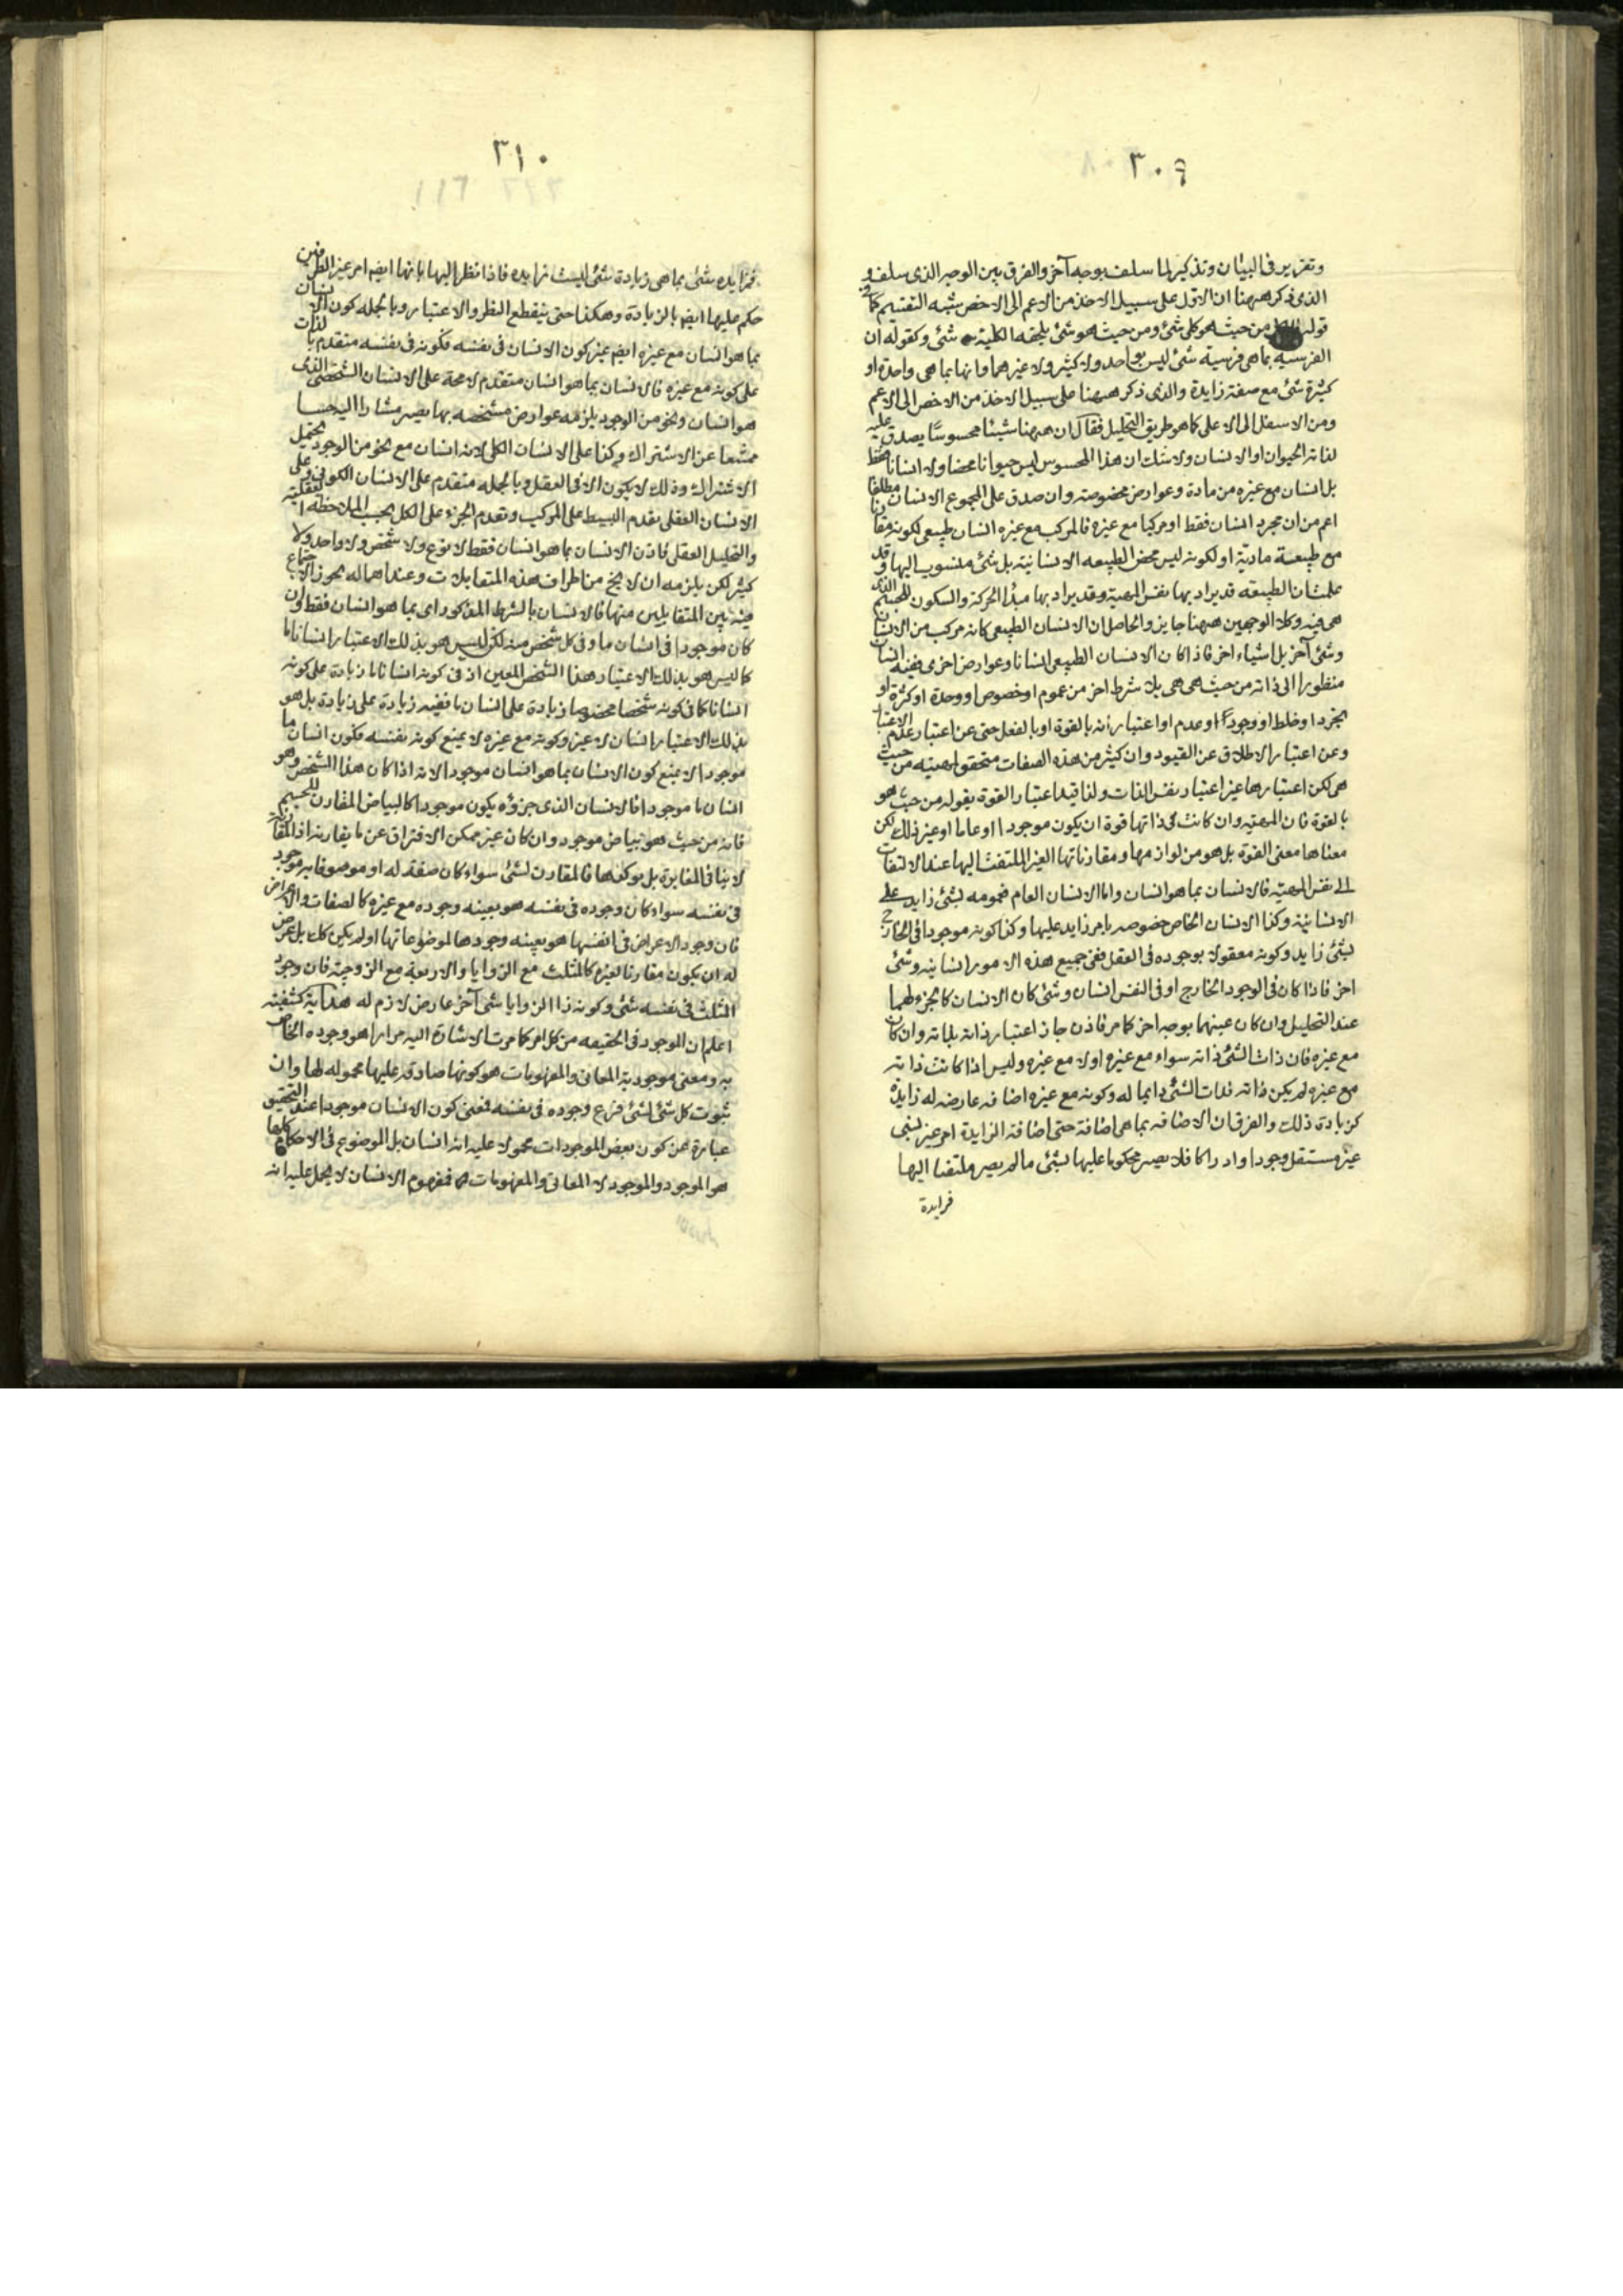 ٣٠٩
وتقرير في البيان وتذكير لما سلف بوجه آخر والفرق بين الوجه الذي سلف و
الذي ذكر ههنا ان الاول على سبيل الاخذ من الاعم الى الاخص يشبه التقسيم كما في
قوله من حيث هو كلي شئ ومن حيث هو شئ يلحقه الكلية شئ وكقوله ان
الفرسية بما هي فرسية شئ ليس بواحد ولا كثير ولا غيرهما وانها بما هي واحدة او
كثيرة شئ مع صفة زايدة والذي ذكر ههنا على سبيل الاخذ من الاخص الى الاعم
ومن الاسفل الى الاعلى كما هو طريق التحليل فقال ان ههنا شيئا محسوسا يصدق عليه
لذاته الحيوان او الانسان ولا شك ان هذا المحسوس ليس حيوانا محضا ولا انسانا محضا
بل انسان مع غيره من مادة وعوارض مخصوصة وان صدق على المجموع الانسان مطلقا
اعم من ان مجرد انسان فقط او مركبا مع غيره فالمركب مع غيره انسان طبيعي لكونه مقارنا
مع طبيعة مادية او لكونه ليس محض الطبيعه الانسانية بل شئ منسوب اليها وقد
علمت ان الطبيعه قد يراد بها نفس المهية وقد يراد بها مبدأ الحركة والسكون للجسم الذي
هي فيه وكلا الوجهين ههنا جايز والحاصل ان الانسان الطبيعي كانه مركب من الانسان
وشئ آخر بل اشياء اخر فاذا كان الانسان الطبيعي انسانا وعوارض اخرى ففيه انسان
منظورا الى ذاته من حيث هي هي بلا شرط اخر من عموم او خصوص او وحدة او كثرة او
تجرد او خلط او وجود او عدم او اعتبار أنه بالقوة او بالفعل حتى عن اعتبار عدم الاعتبار
وعن اعتبار الاطلاق عن القيود وان كثير من هذه الصفات متحقق لمهيته من حيث
هي لكن اعتبارها غير اعتبار نفس الذات ولذا قيد اعتبار القوة بقوله من حيث هو
بالقوة فان المهية وان كانت في ذاتها قوة ان يكون موجودا او عاما او غير ذلك لكن
معناها معنى القوة بل هو من لوازمها ومقارناتها الغير الملتفت اليها عند الالتفات
الى نفس المهية فالانسان بما هو انسان واما الانسان العام فعمومه بشئ زايد على
الانسانية وكذا الانسان الخاص خصوصه بامر زايد عليها وكذا كونه موجودا في الخارج
بشئ زايد وكونه معقولا بوجوده في العقل ففي جميع هذه الامور انسانية وشئ
اخر فاذا كان في الوجود الخارج او في النفس انسان وشئ كان الانسان كالجزء لهما
عند التحليل وان كان عينهما بوجه اخر كما مر فاذن جاز اعتبار ذاته بذاته وان كان
مع غيره فان ذات الشئ ذاته سواء مع غيره او لا مع غيره وليس اذا كانت ذاته
مع غيره لم يكن ذاته فذات الشئ دايما له وكونه مع غيره اضافه عارضه له زايدة
كزيادة ذلك والفرق ان الاضافه بما هي اضافة حتى اضافة الزايدة امر غير لشئ
غير مستقل وجودا وادراكا فلا يصير محكوما عليها بشئ ما لم يصر ملتفتا اليها
فزايدة
٣١٠
فزايده شئ بما هي زيادة شئ ليست زايده فاذا نظر اليها بانها ايضا امر غير الطرفين
حكم عليها ايضا بالزيادة وهكذا حتى ينقطع النظر والاعتبار وبالجمله كون الانسان
بما هو انسان مع غيره ايضا غير كون الانسان في نفسه فكونه في نفسه متقدم بالذات
على كونه مع غيره فالانسان بما هو انسان متقدم لا محة على الانسان الشخصي الذي
هو انسان ونحو من الوجود يلزمه عوارض مشخصه بها يصير مشارا اليه حسا
ممتنعا عن الاشتراك وكذا على الانسان الكلي لانه انسان مع نحو من الوجود يحتمل
الاشتراك وذلك لا يكون الا في العقل وبالجمله متقدم على الانسان الكوني وعلى
الانسان العقلي تقدم البسيط على المركب وتقدم الجزء على الكل بحسب الملاحظة العقلية
والتحليل العقلي فاذن الانسان بما هو انسان فقط لا نوع ولا شخص ولا واحد ولا
كثير لكن يلزمه ان لا يخ من اطراف هذه المتقابلات وعند اهماله يجوز الاجتماع
فيه بين المتقابلين منها فالانسان بالشرط المذكور اي بما هو انسان فقط وان
كان موجودا في انسان ما وفي كل شخص منه لكن ليس هو بذلك الاعتبار انسانا ما
كما ليس هو بذلك الاعتبار هذا الشخص المعين اذ في كونه انسانا ما زيادة على كونه
انسانا كما في كونه شخصا مخصوصا زيادة على انسان ما ففيه زيادة على زيادة بل هو
بذلك الاعتبار انسان لا غير وكونه مع غيره لا يمنع كونه بنفسه فكون انسان ما
موجودا لا يمنع كون الانسان بما هو انسان موجود الانه اذا كان هذا الشخص وهو
انسان ما موجودا فالانسان الذي جزؤه يكون موجودا كالبياض المقارن للجسم
فانه من حيث هو بياض موجود وان كان غير ممكن الافتراق عن ما يقارنه اذ المقارنة
لا ينافي المغايرة بل يوكدها فالمقارن لشئ سواء كان صفة له او موصوفا به موجود
في نفسه سواء كان وجوده في نفسه هو بعينه وجوده مع غيره كالصفات والاعراض
فان وجود الاعراض في انفسها هو بعينه وجودها لموضوعاتها او لم يكن كك بل عرض
له ان يكون مقارنا لغيره كالمثلث مع الزوايا والاربعة مع الزوجية فان وجود
المثلث في نفسه شئ وكونه ذا الزوايا شئ آخر عارض لازم له هداية كشفيه
اعلم ان الموجود في الحقيقه من كل امر كما مرت الاشارة اليه مرارا هو وجوده الخاص
به ومعنى موجودية المعاني والمفهومات هو كونها صادقه عليها محموله لها وان
ثبوت كل شئ لشئ فرع وجوده في نفسه فمعنى كون الانسان موجودا عند التحقيق
عبارة عن كون بعض الموجودات محمولا عليه انه انسان بل الموضوع في الاحكام كلها
هو الموجود والموجود لا المعاني والمفهومات فمفهوم الانسان لا يحمل عليه انه